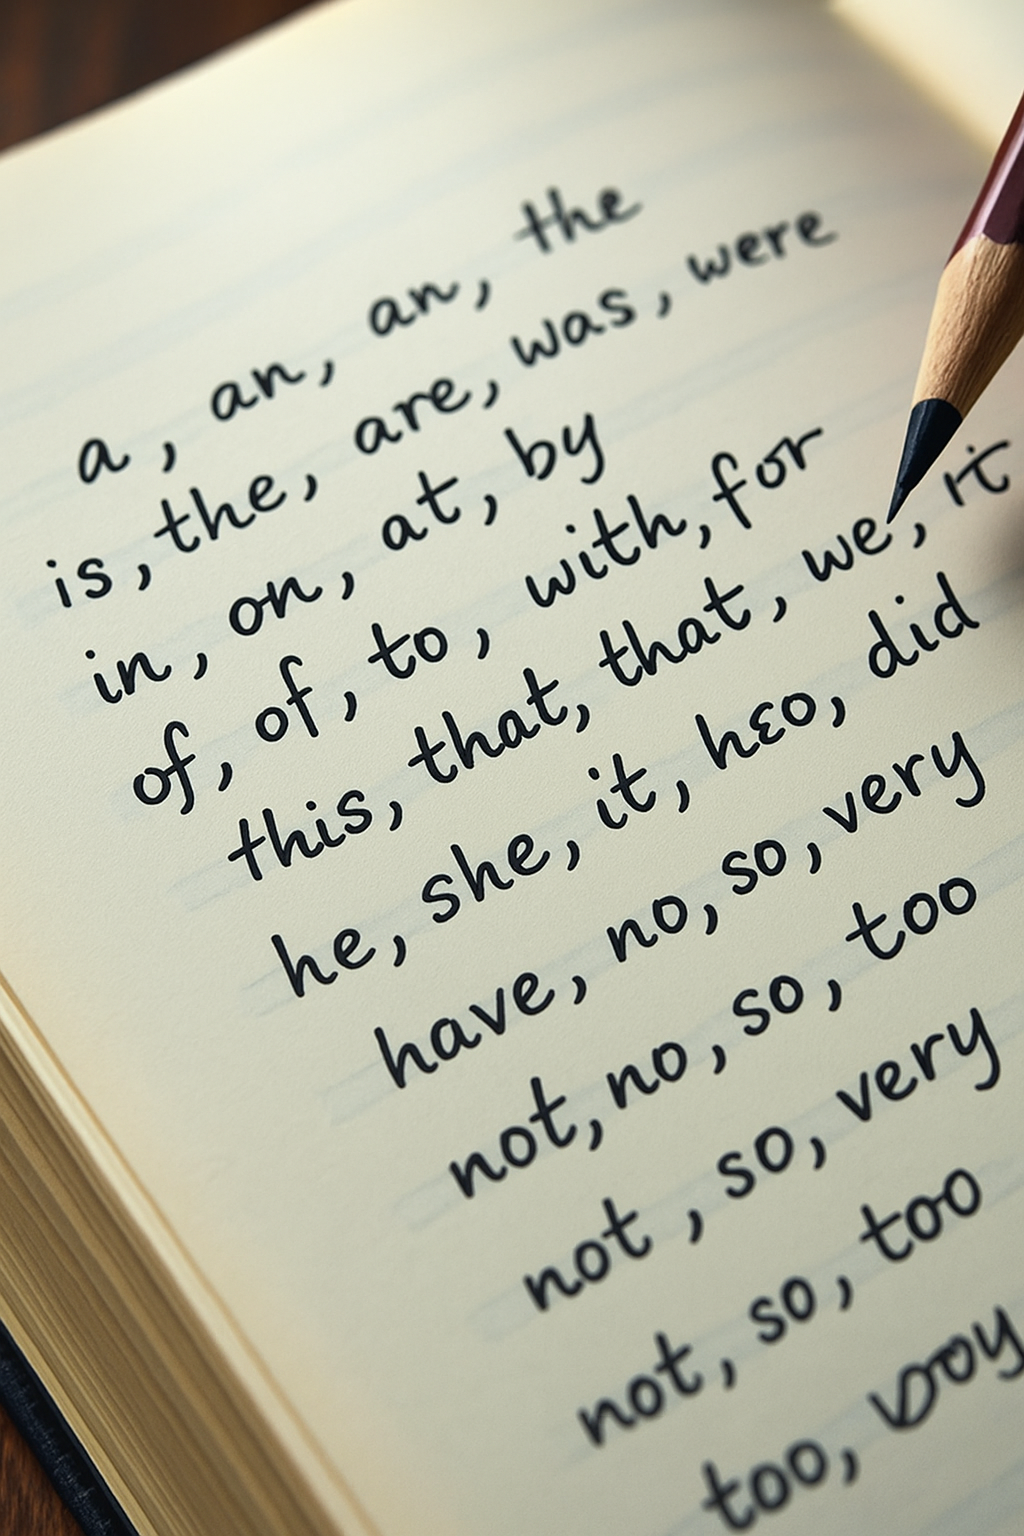 a, an, an, the
is, the, are, was, were
in, on, at, by
of, of, to, with, for
this, that, that, we, it
he, she, it, hεo, did
have, no, so, very
not, no, so, too
not, so, very
not, so, too
too,